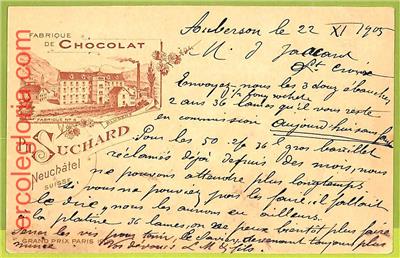 FABRIQUE
DE CHOCOLAT
FABRIQUE Nº
SUCHARD
Neuchâtel
SUISSE
GRAND PRIX PARIS
Auberson le 22 XI 1905
M. J Jaccard
Ste Croix
Envoyez-nous les 3 douz ébauches
2 ans 36 lames qu'il vous reste
en commission Aujourd'hui sans
Pour les 50 36 l gros barillet
réclamés déjà depuis des mois, nous
ne pouvons attendre plus longtemps
si vous ne pouviez pas les faire, il fallait
le dire, nous les aurions eu ailleurs.
la platine 36 lames, on ne peux bientôt plus faire
Serrer les vis pour tous, le devenant toujours plus
mince. Vos dévoués & fils.
ercolegloria.com